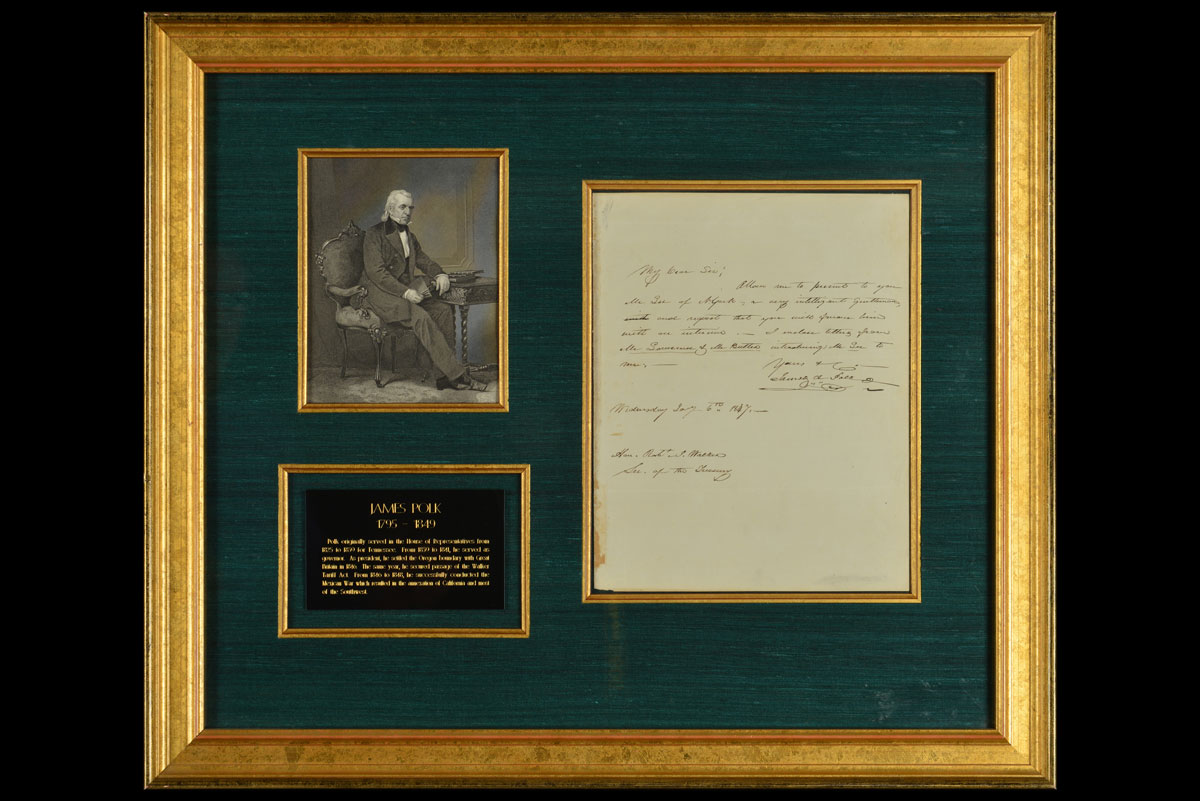 JAMES POLK
1795 - 1849
Polk originally served in the House of Representatives from
1825 to 1839 for Tennessee. From 1839 to 1841, he served as
governor. As president, he settled the Oregon boundary with Great
Britain in 1846. The same year, he secured passage of the Walker
Tariff Act. From 1846 to 1848, he successfully conducted the
Mexican War which resulted in the annexation of California and most
of the Southwest.
My Dear Sir;
Allow me to present to you
Mr of N. York, a very intelligent gentleman,
and request that you will favour him
with an interview. — I enclose letters from
Mr Lawrence & Mr Butler introducing Mr to
me. —
Yours &c
James K. Polk
Wednesday 6th 1847. —
Hon. Robt J. Walker
Sec. of the Treasury